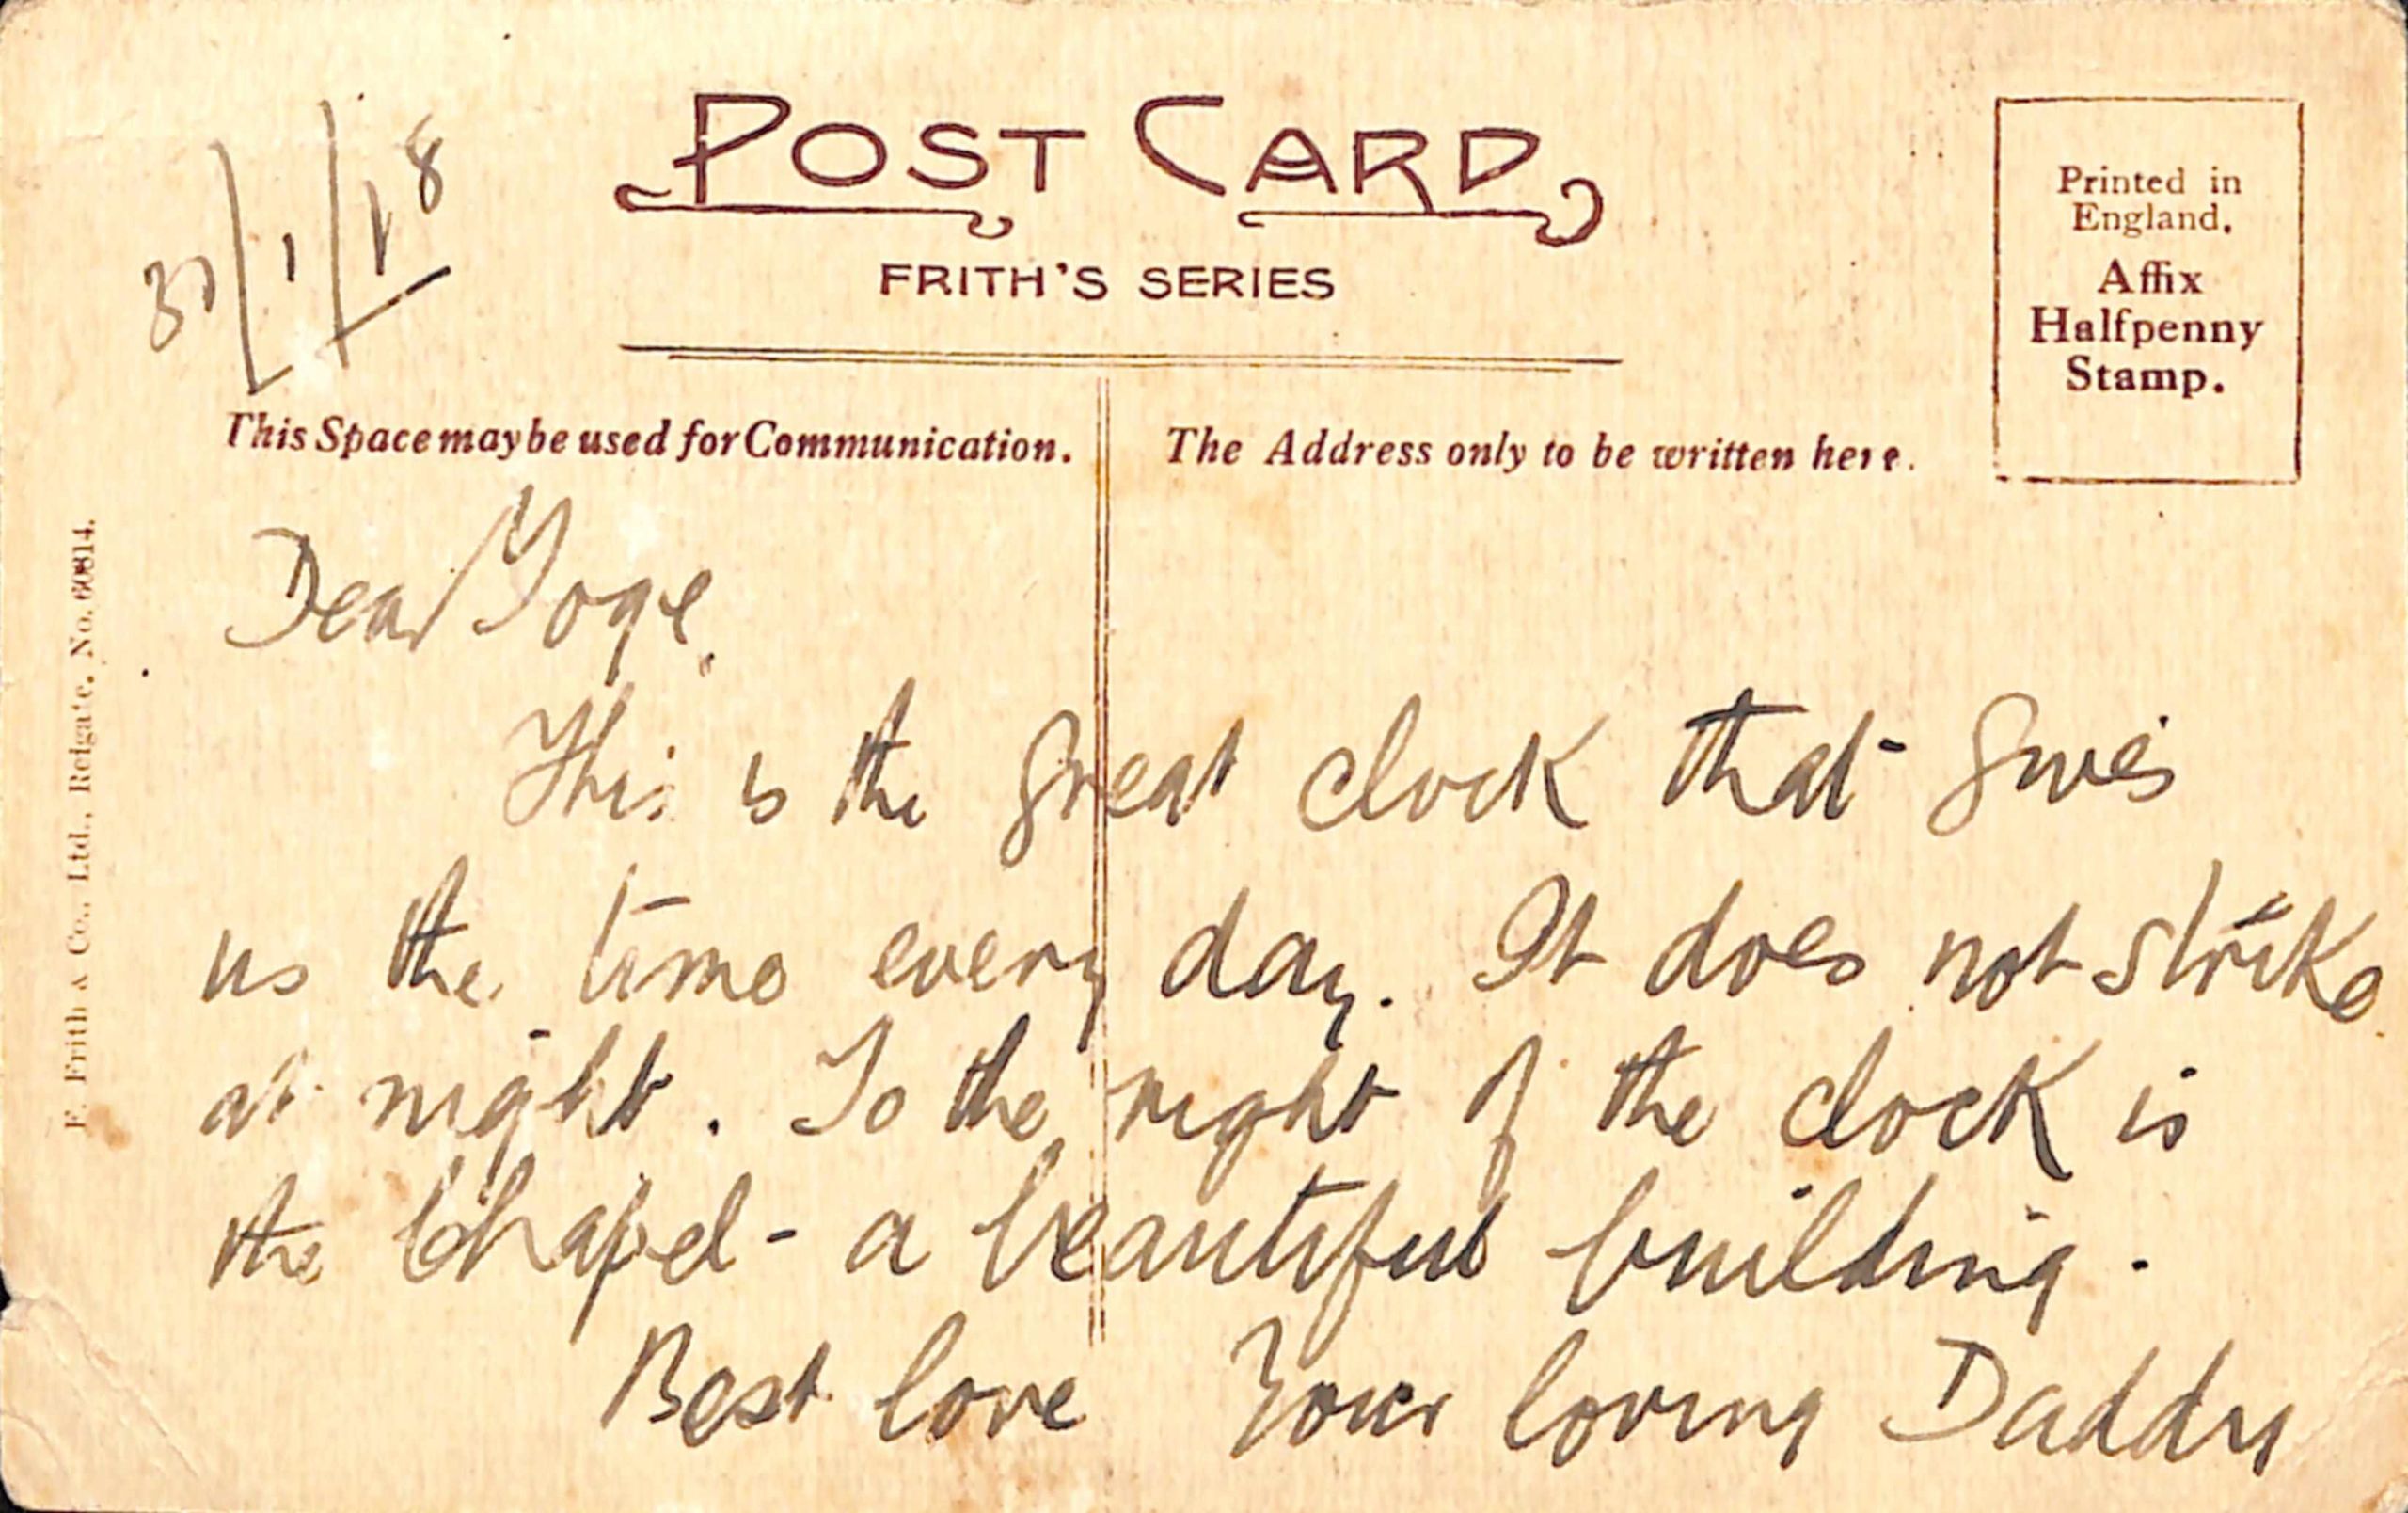 30/1/18
POST CARD
FRITH'S SERIES
Printed in
England.
Affix
Halfpenny
Stamp.
This Space may be used for Communication.
The Address only to be written here.
F. Frith & Co., Ltd., Reigate. No. 60814.
Dear
This is the great clock that gives
us the time every day. It does not strike
at night. To the right of the clock is
the Chapel - a beautiful building.
Best love Your loving Daddy